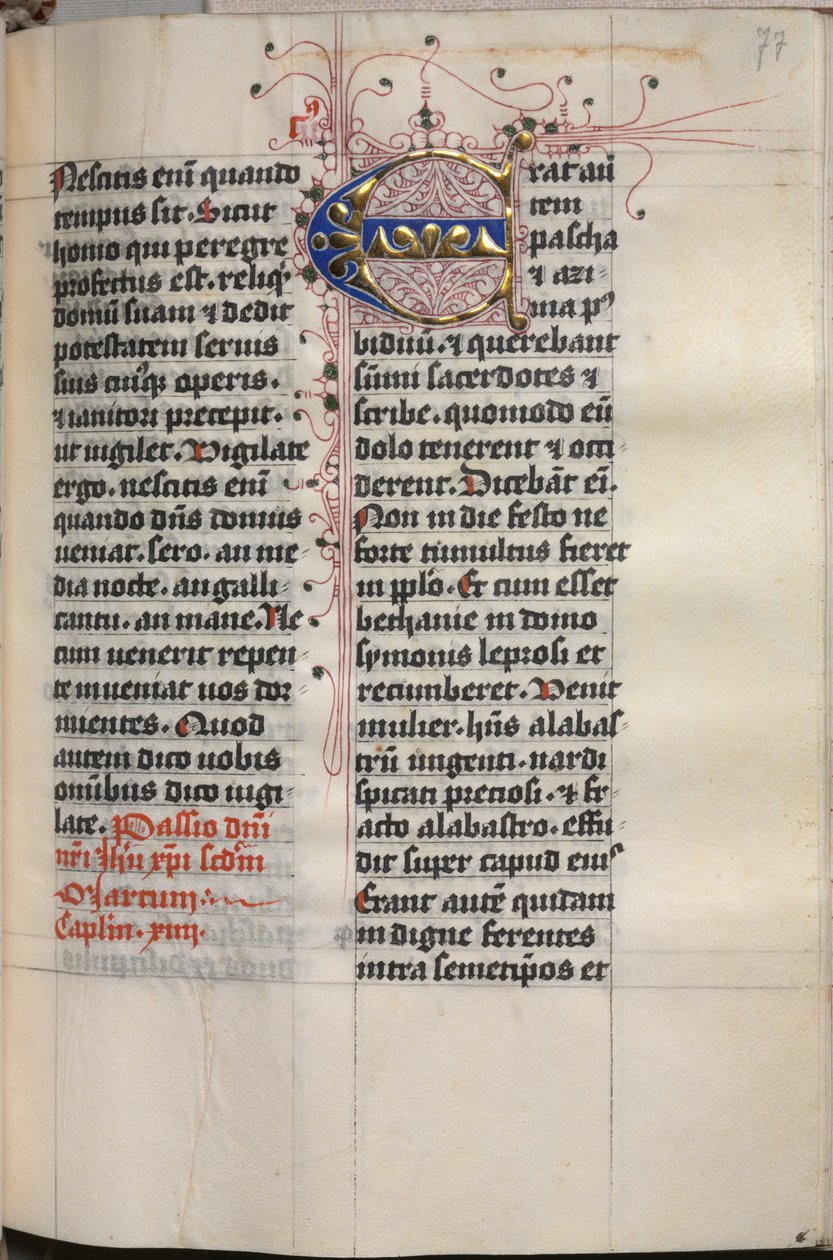 77
Nescitis eni̅ quando
tempus sit. Sicut
homo qui peregre
profectus est. reliq̓
domu̅ suam ⁊ dedit
potestatem seruis
suis cui̓q; operis.
⁊ ianitori precepit.
ut uigilet. Vigilate
ergo. nescitis eni̅
quando dn̅s domus
ueniat. sero. an me⸗
dia nocte. an galli⸗
cantu. an mane. Ne
cum uenerit repen⸗
te inueniat uos dor⸗
mientes. Quod
autem dico uobis
om̅ibus dico uigi⸗
late. Passio dn̅i
nr̅i ih̅u xp̅i scd̅m
Marcum
Capl̅m. xiiij.
Erat au̅
tem
pascha
⁊ azi⸗
ma pꝰ
biduu̅. ⁊ querebant
su̅mi sacerdotes ⁊
scribe. quomodo eu̅
dolo tenerent ⁊ occi⸗
derent. Diceba̅t ei̅.
Non in die festo ne
forte tumultus fieret
in pp̅lo. Et cum esset
bethanie in domo
symonis leprosi et
recumberet. Venit
mulier. hn̅s alabas⸗
tru̅ ungenti. nardi
spicati preciosi. ⁊ fr⸗
acto alabastro. effu⸗
dit super capud eiuꝰ
Erant aute̅ quidam
in digne ferentes
intra semetip̅os et